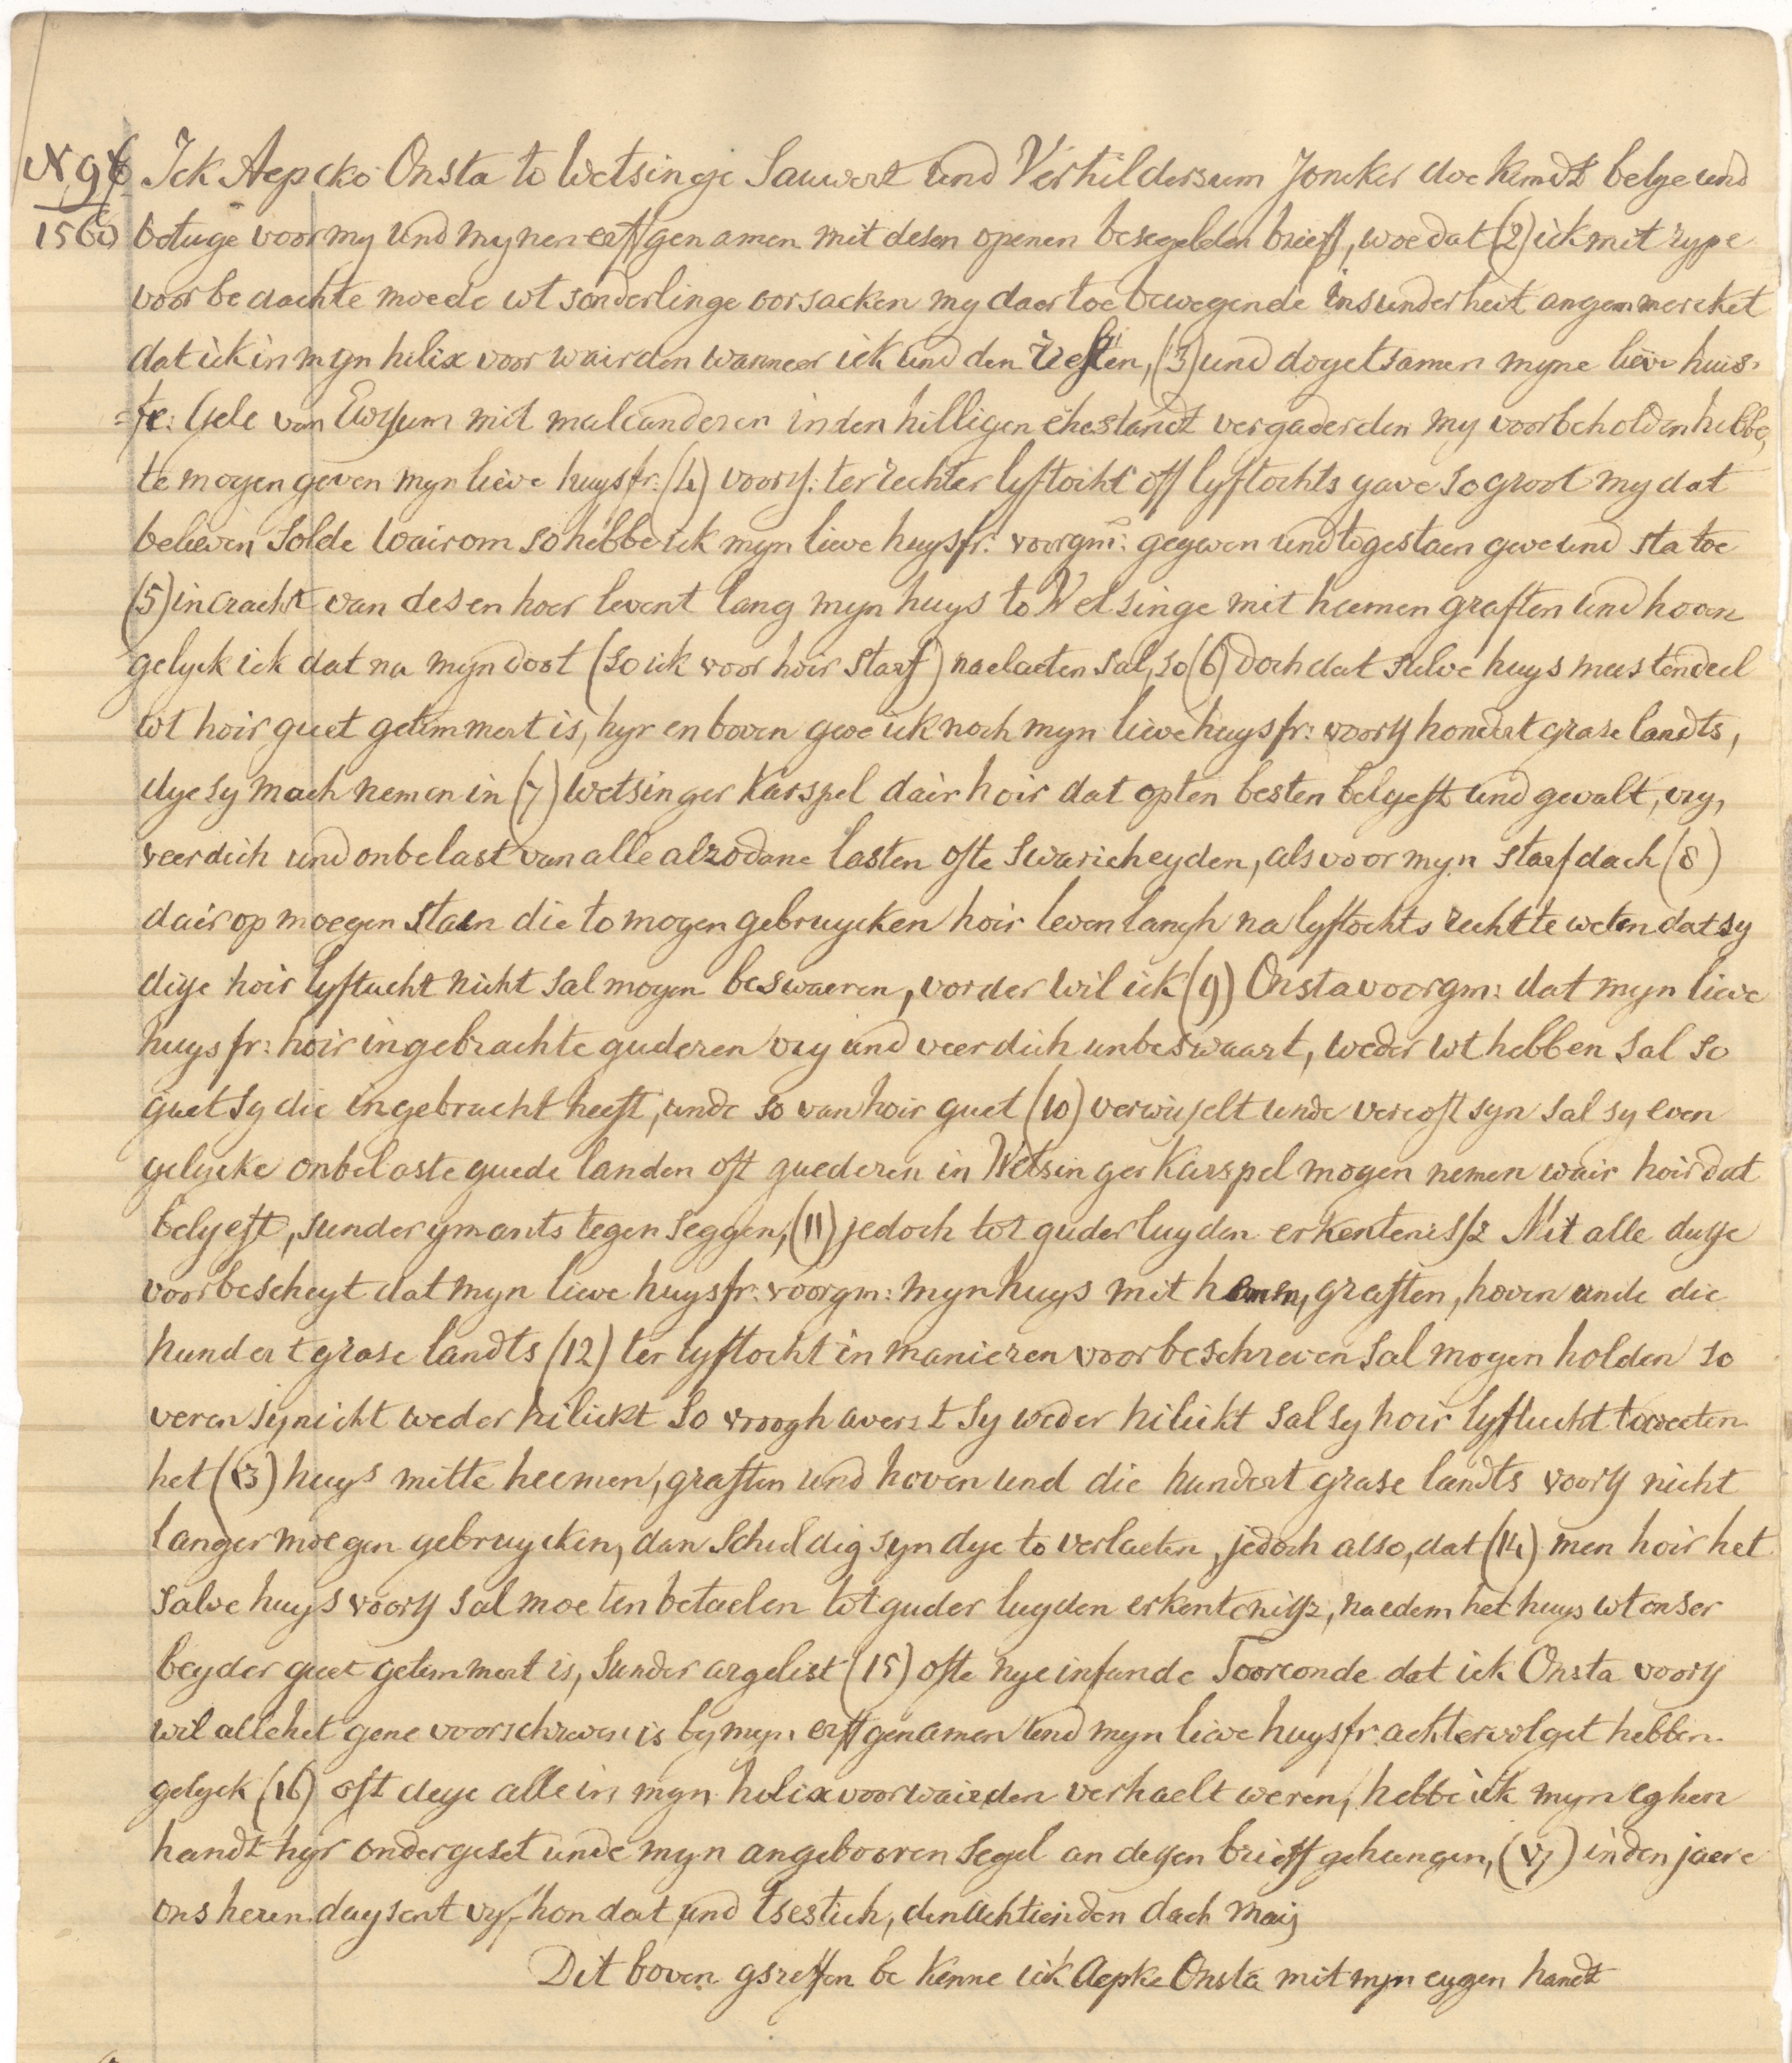 N 96 Ick Aepcko Onsta to Wetsinge Sauwert und Verhildersum Joncker doe kundt belye und
1560 betuge voor my und mynen erffgenamen mit desen openen besegelden brieff, woe dat (2) ick mit rype
voorbedachte moede wt sonderlinge oorsacken my daer toe bewegende insunderheit angemercket
dat ick in myn hilix voorwairden wanneer ick und den (3) und dogetsamen myne lieve huis-
=fr: Gele van Ewsum mit malcanderen in den hilligen ehestandt vergaderden my voorbeholden hebbe,
te mogen geven myn lieve huysfr: (4) voors: ter rechter lyftocht off lyftochts gave so groot my dat
believen solde wairom so hebbe ick myn lieve huysfr: voorgm: gegeven und togestaen geve und sta toe
(5) in cracht van desen hoer levent lang myn huys to Wetsinge mit heemen graften und hoven
gelyck ick dat na myn doot (so ick voor hoir starf) naelaeten sal, so (6) doch dat sulve huys meestendeel
wt hoir guet getimmert is, hyr en boven geve ick noch myn lieve huysfr: voors hondert grase landts,
dye sy mach nemen in (7) Wetsinger Karspel dair hoir dat opten besten belyeft und gevalt, vry,
veerdich und onbelast van alle alzodane lasten ofte swaricheyden, als voor myn starfdach (8)
dair op moegen staen die to mogen gebruycken hoir leven langh na lyftochts recht te weten dat sy
dye hoir lyftucht nicht sal mogen beswaeren, vorder wil ick (9) Onsta voorgm: dat myn lieve
huysfr: hoir ingebrachte guderen vry und veerdich unbeswaart, weder wt hebben sal so
guet sy die ingebracht heeft, unde so van hoir guet (10) verwisselt unde vercoft syn sal sy even
gelycke onbelaste guede landen oft guederen in Wetsinger Karspel mogen nemen wair hoir dat
belyeft, sunder ymants tegenseggen, (11) jedoch tot guder luyden erkentenisse Mit alle dusse
voorbescheyt dat myn lieve huysfr: voorgm: myn huys mit hemen, graften, hoven unde die
hundert grase landts (12) ter lyftocht in manieren voorbeschreven sal mogen holden so
veren sy nicht weder hilickt so vroogh averst sy weder hilickt sal sy hoir lyftucht toweeten
het (13) huys mitte heemen, graften und hoven und die hundert grase landts voors nicht
langer moegen gebruycken, dan schuldig syn dye to verlaeten, jedoch also, dat (14) men hoir het
salve huys voors sal moeten betaelen tot guder luyden erkentenisse, naedem het huys wt onser
beyder guet getimmert is, sunder argelist (15) ofte nye infunde Toorconde dat ick Onsta voors
wil alle het gene voorschreven is by myn erffgenamen und myn lieve huysfr: achtervolget hebben.
gelyck (16) oft deye alle in myn hilix voorwairden verhaelt weren, hebbe ick myn eghen
handt hyr ondergeset unde myn angebooren segel an desen brieff gehangen, (17) in den jaere
ons heren duysent vyfhondert und tsestich, den achtienden dach Maij
Dit boven gsreffen bekenne ick Aepke Onsta mit myn eygen handt